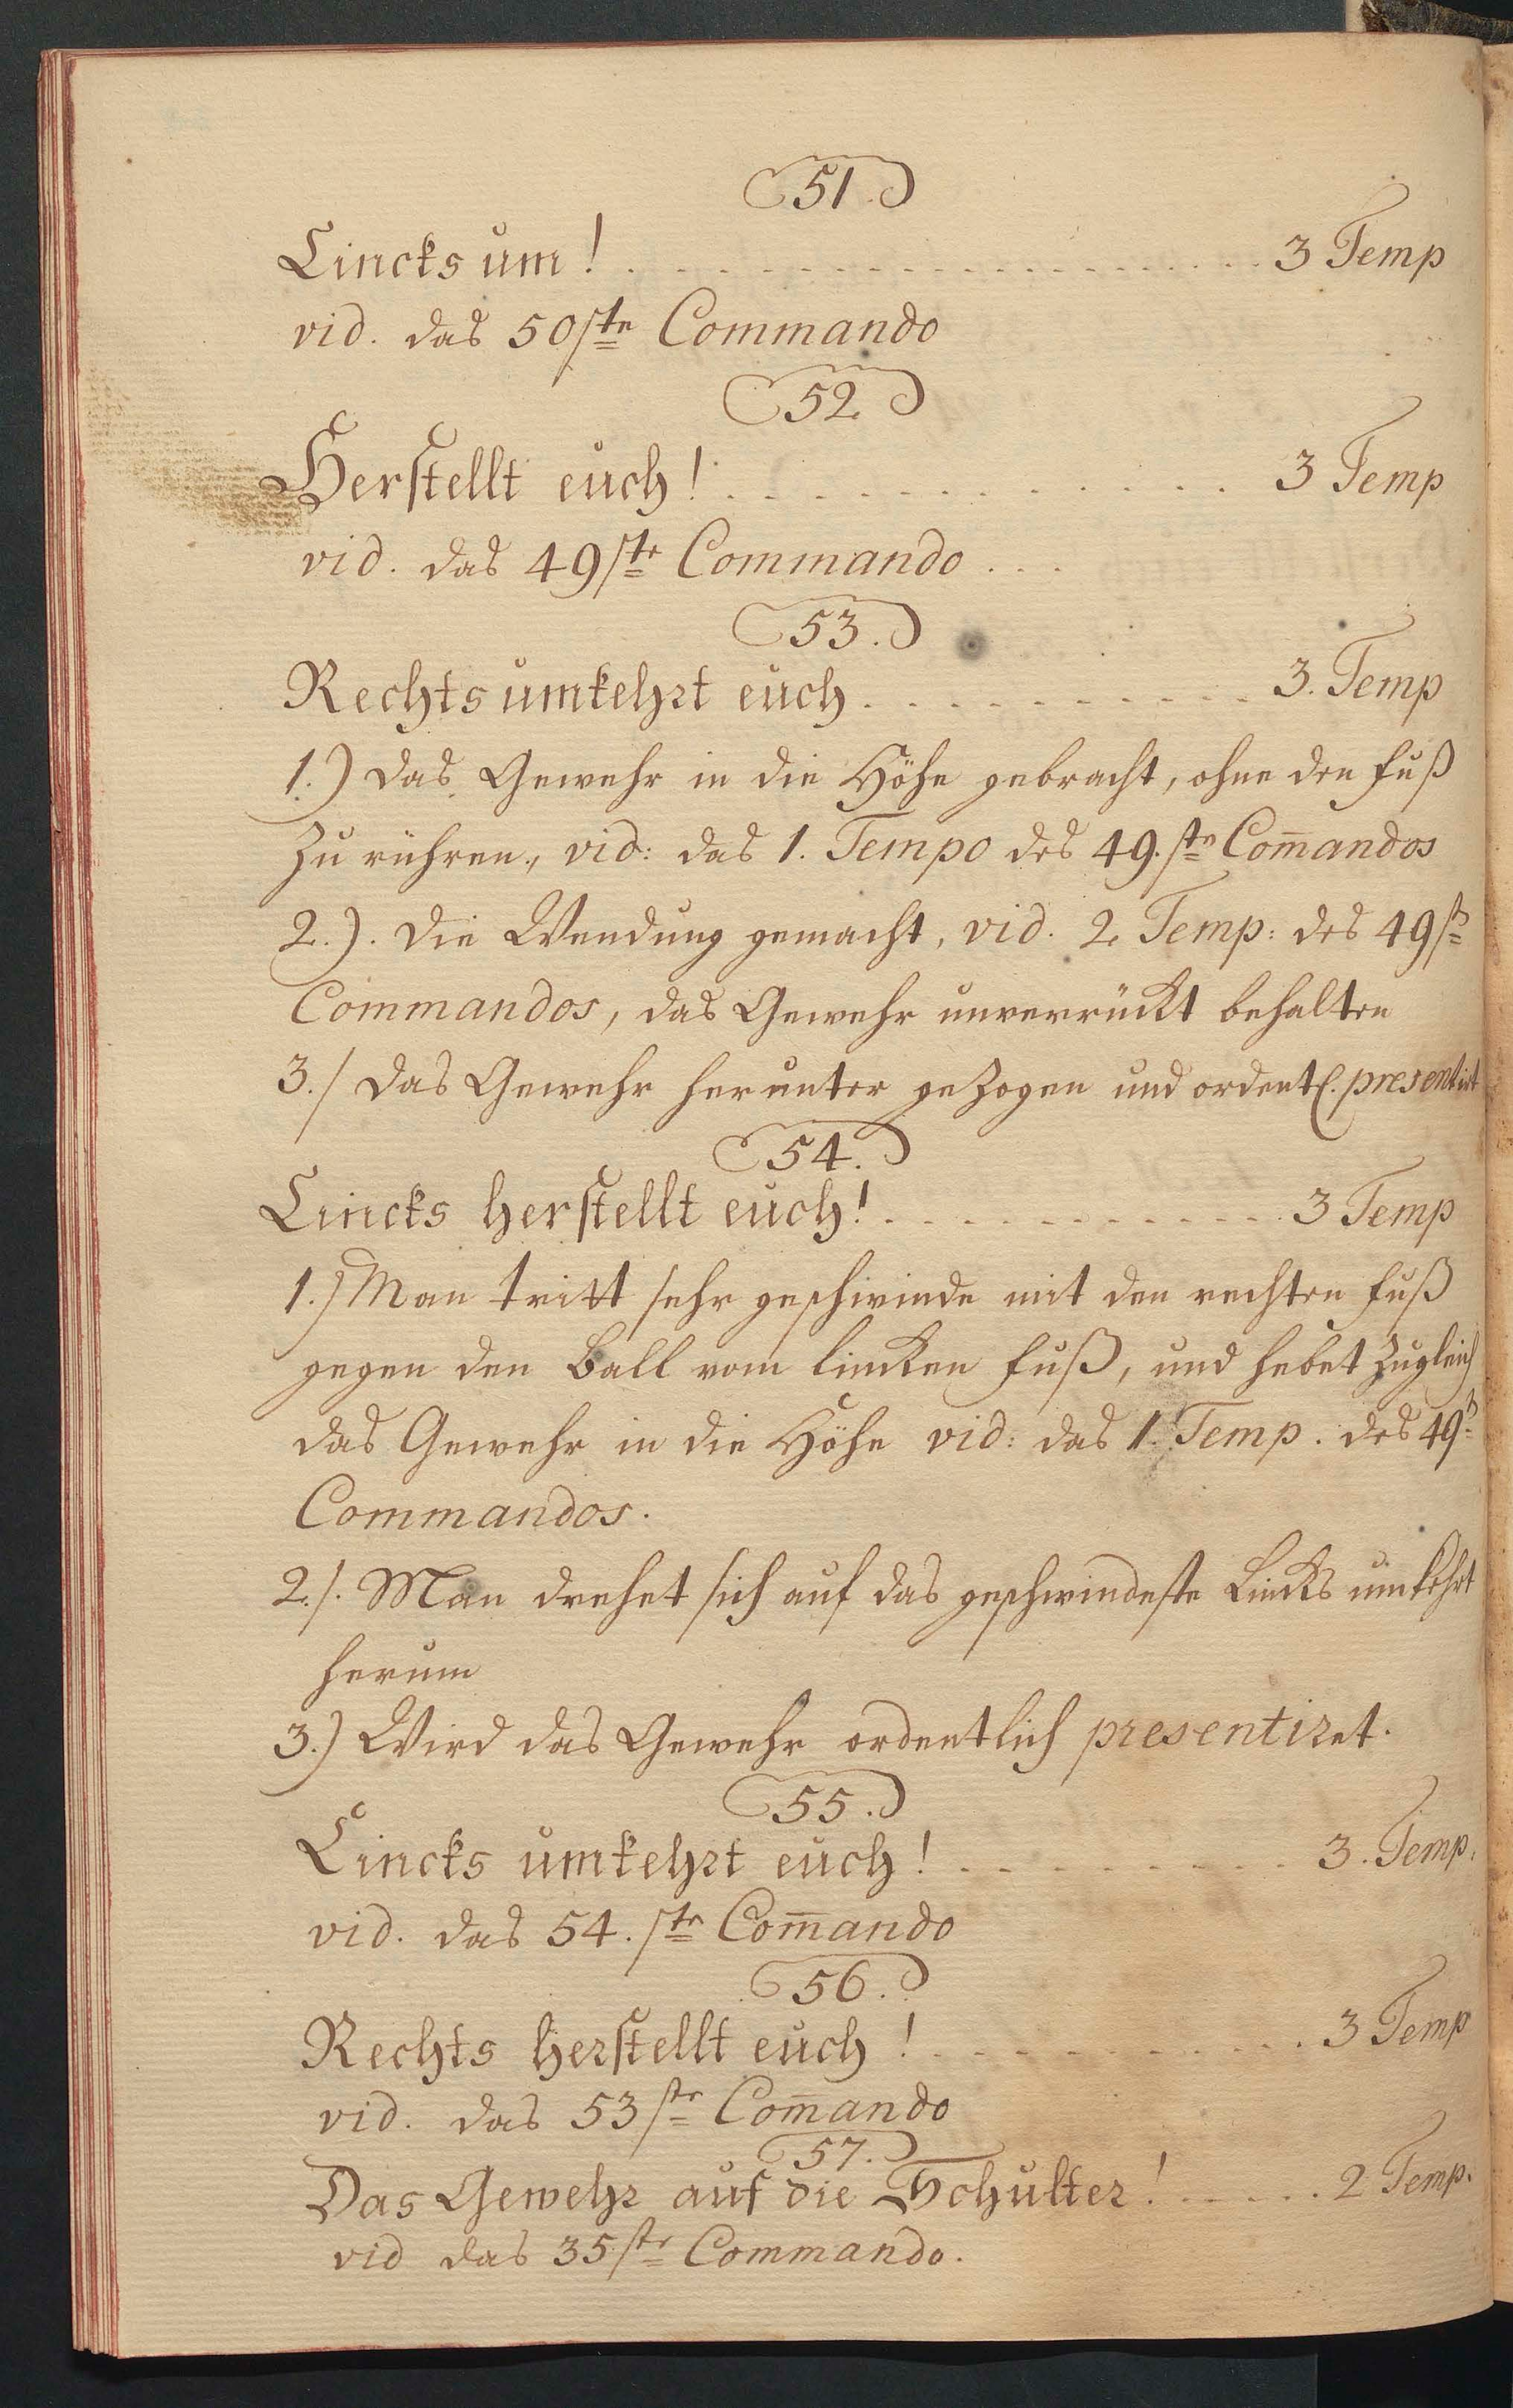 51.
Lincks um! . . . . . . . . . . . . . . . . . . 3 Temp
vid. das 50ste Commando
52
Herstellt euch! . . . . . . . . . . . . . . . 3 Temp
vid. das 49ste Commando . . .
53.
Rechts umkehrt euch . . . . . . . . . . . 3. Temp
1.) das Gewehr in die Höhe gebracht, ohne den fuß
zu rühren, vid: das 1. Tempo des 49.ste Com̄andos
2.). die Wendung gemacht, vid. 2. Temp: des 49st
Commandos, das Gewehr unverrückt behalten
3./ das Gewehr herunter gezogen und ordentl. presentirt
54.
Lincks herstellt euch! . . . . . . . . . . . . 3 Temp
1.) Man tritt sehr geschwinde mit den rechten fuß
gegen den Ball vom lincken fuß, und hebet zugleich
das Gewehr in die Höhe vid: das 1. Temp. des 49t
Commandos.
2./. Man drehet sich auf das geschwindeste Lincks umkehrt
herum
3.) Wird das Gewehr ordentlich presentiret.
55.
Lincks umkehrt euch! . . . . . . . . . 3. Temp.
vid. das 54.ste Com̄ando
56.
Rechts herstellt euch! . . . . . . . . . . . 3 Temp
vid. das 53ste Com̄ando
57.
Das Gewehr auf die Schulter! . . . . . 2 Temp.
vid das 35ste Commando.